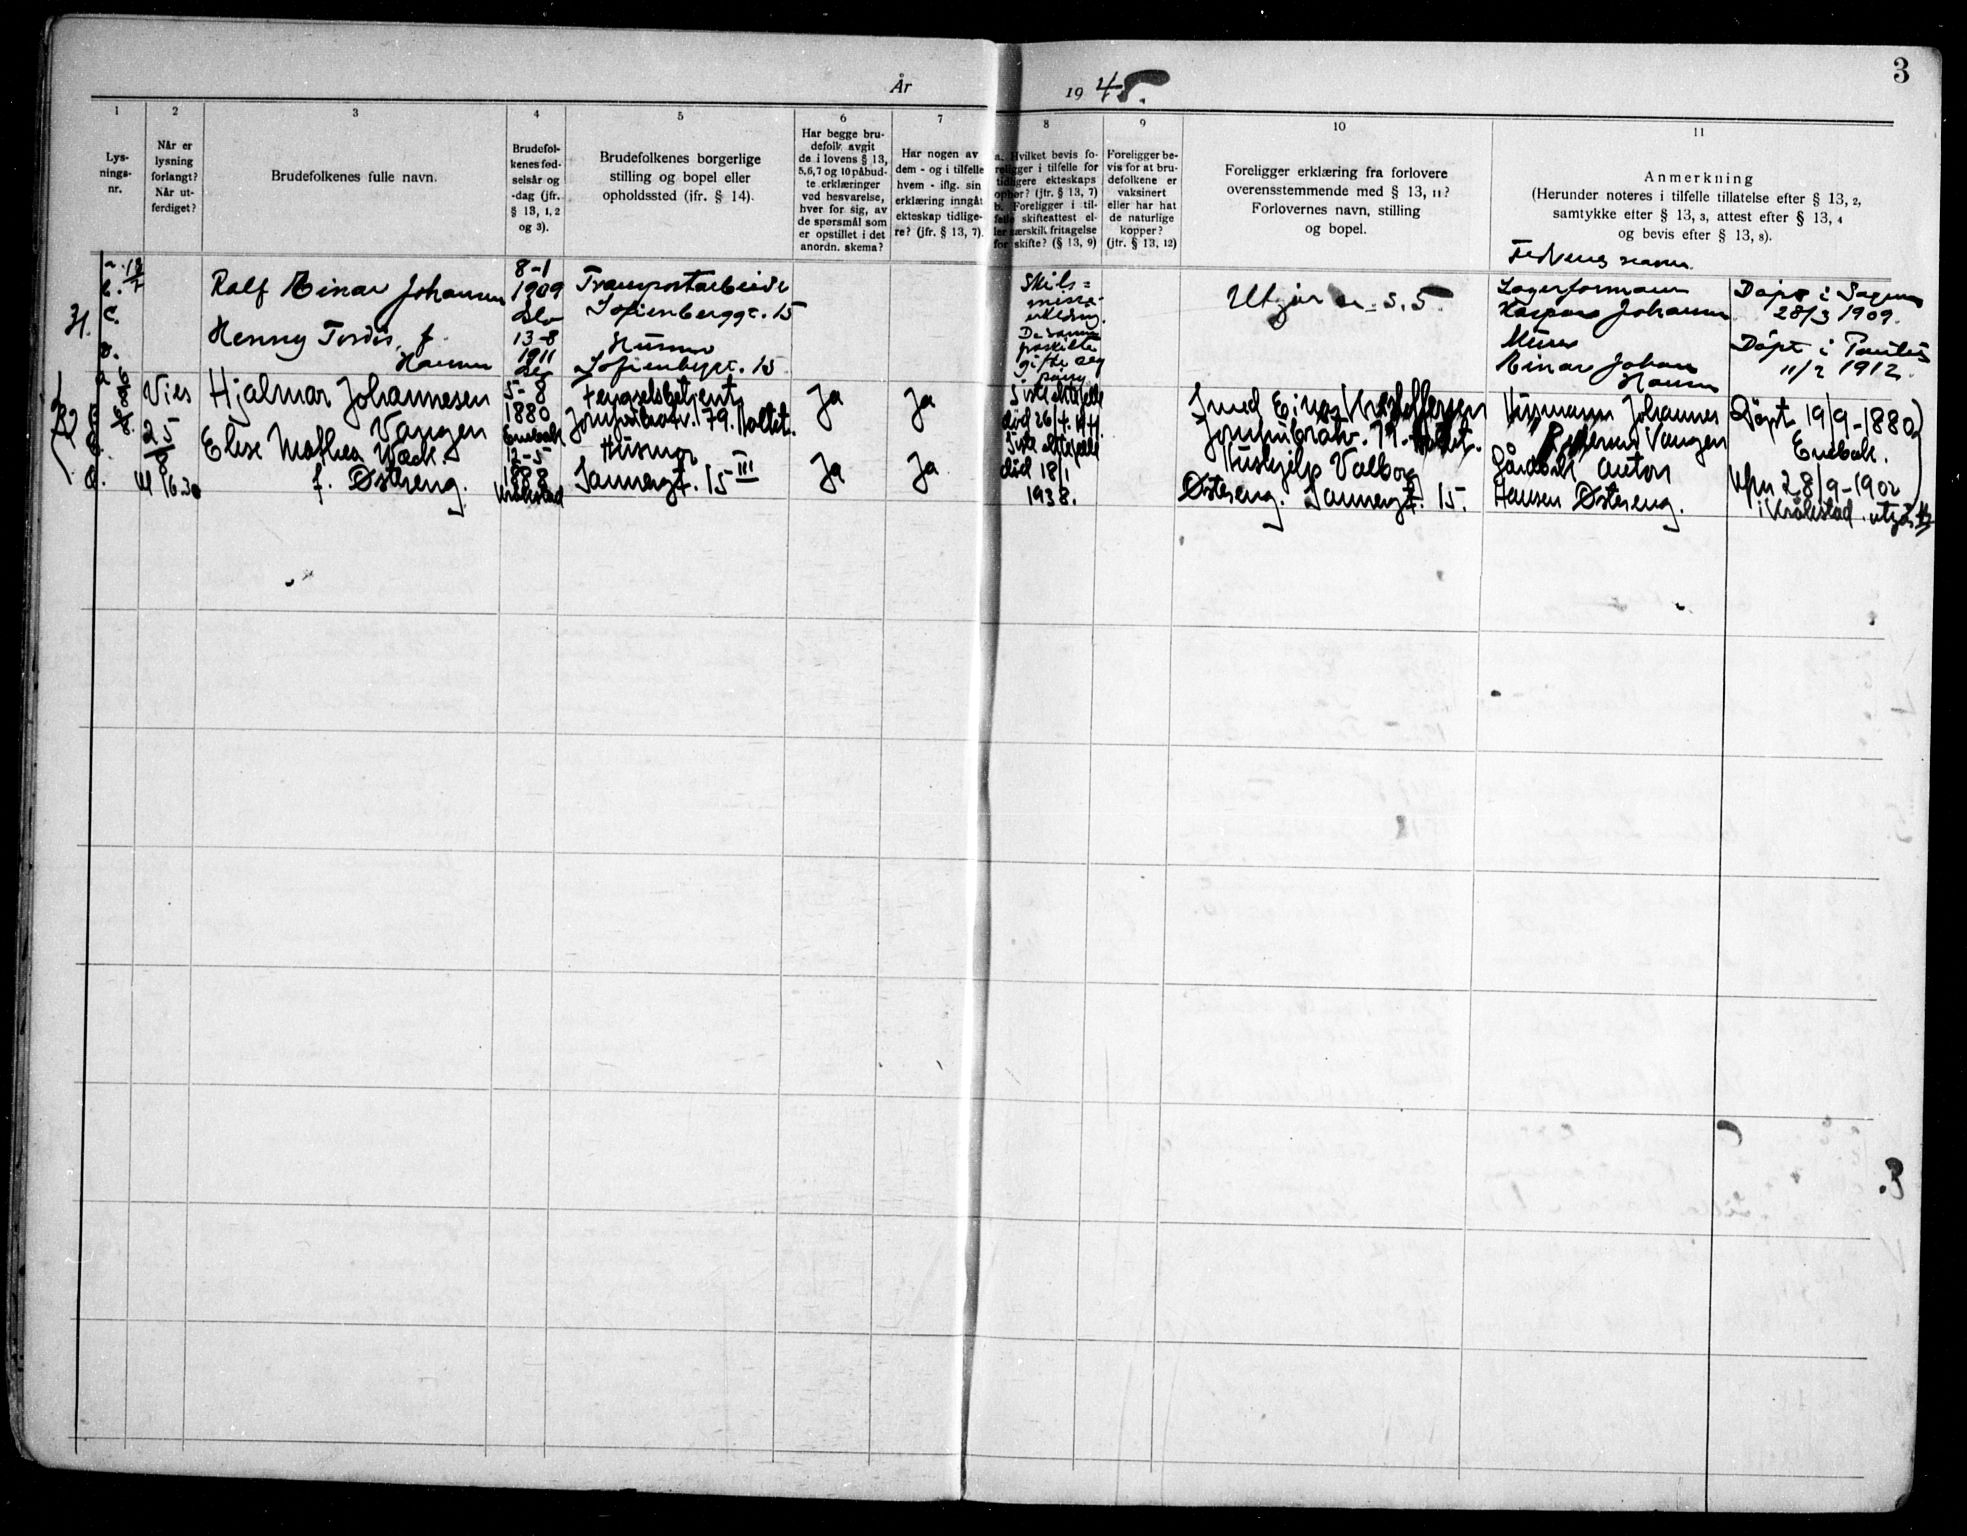 År 1945.
3
1
Lys-
nings-
nr.
2
Når er
lysning
forlangt?
Når ut-
ferdiget?
3
Brudefolkenes fulle navn.
4
Brudefol-
kenes fød-
selsår og
-dag (jfr.
§ 13, 1, 2
og 3).
5
Brudefolkenes borgerlige
stilling og bopel eller
opholdssted (jfr. § 14).
6
Har begge bru-
defolk avgit
de i lovens § 13,
5, 6, 7 og 10 påbud-
te erklæringer
ved besvarelse,
hver for sig, av
de spørsmål som
er opstillet i det
anordn. skema?
7
Har nogen av
dem - og i tilfelle
hvem - iflg. sin
erklæring inngåt
ekteskap tidlige-
re? (jfr. § 13, 7).
8
a. Hvilket bevis fo-
religger i tilfelle for
tidligere ekteskaps
ophør? (jfr. § 13, 7)
b. Foreligger i til-
felle skifteattest el-
ler særskilt fritagelse
for skifte? (§ 13, 9)
9
Foreligger be-
vis for at bru-
defolkene er
vaksinert
eller har hat
de naturlige
kopper?
(jfr. § 13, 12)
10
Foreligger erklæring fra forlovere
overensstemmende med § 13, 11?
Forlovernes navn, stilling
og bopel.
11
Anmerkning
(Herunder noteres i tilfelle tillatelse efter § 13, 2,
samtykke efter § 13, 3, attest efter § 13, 4
og bevis efter § 13, 8).
31.
Ralf Einar Johansen
8-1
1909
Oslo
Transportarbeider
Sofienberggt. 15
Henny Tordis, f.
Hansen
13-8
1911
Oslo
Husmor
Sofienberggt. 15
Skils=
De samme
gifte seg
Utgår se s. 5
Lagerformann
Kaspar Johansen
Døpt i Sagene
28/3 1909.
Murer
Einar Johan
Hansen
Døpt i Paulus
11/2 1912.
32
Vies
25/8
kl 16.30
Hjalmar Johannesen
Vangen
5-8
1880
Enebak
Fengselsbetjent
79.
Ja
Ja
død 26/4. 1944.
Einar Kristoffersen
79.
Husmann Johannes
Pedersen Vangen
Døpt 19/9-1880
Enebak.
Elise Mathea Wæck.
f. Østereng.
12-5
1888
Kråkstad
Husmor
Sannergt. 15 III
Ja
Ja
død 18/1
1938.
Hushjelp Valborg
Østereng. Sannergt. 15.
Gårdbr. Anton
Hansen Østereng.
28/9-1902
i Kråkstad.